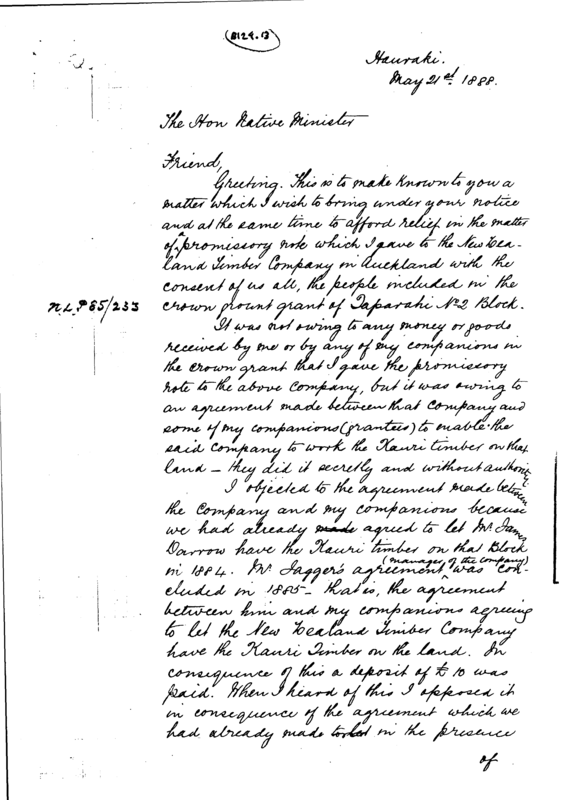 (B129.B)
Hauraki.
May 21st. 1888.
The Hon Native Minister
Friend,
Greeting. This is to make known to you a
matter which I wish to bring under your notice
and at the same time to afford relief in the matter
of a promissory note which I gave to the New Zea-
land Timber Company in Auckland with the
consent of us all, the people included in the
N.L.P 85/233 crown grount grant of Taparahi No 2 Block.
It was not owing to any money or goods
received by me or by any of my companions in
the crown grant that I gave the promissory
note to the above company, but it was owing to
an agreement made between that company and
some of my companions (grantees) to enable the
said company to work the Kauri timber on that
land - they did it secretly and without authority
I objected to the agreement made between
the Company and my companions because
we had already made agreed to let Mr James
Darrow have the Kauri timber on that Block
in 1884. Mr Jagger's agreement (manager of the company) was con-
cluded in 1885 - that is, the agreement
between him and my companions agreeing
to let the New Zealand Timber Company
have the Kauri Timber on the land. In
consequence of this a deposit of £10 was
paid. When I heard of this I opposed it
in consequence of the agreement which we
had already made in the presence
of